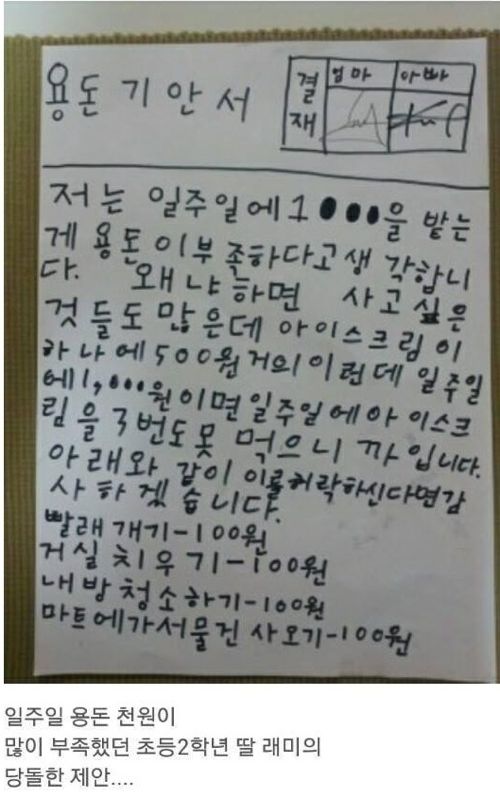 용돈 기안서
결재
엄마
아빠
저는 일주일에 1●●●을 받는
게 용돈이 부족하다고 생각합니
다. 왜냐하면 사고 싶은
것들도 많은데 아이스크림이
하나에 500원 거의 이런데 일주일
에 1,000원이면 일주일에 아이스크
림을 3번도 못 먹으니까입니다.
아래와 같이 이를 허락하신다면 감
사하겠습니다.
빨래개기-100원
거실 치우기-100원
내 방 청소하기-100원
마트에 가서 물건 사오기-100원
일주일 용돈 천원이
많이 부족했던 초등2학년 딸 래미의
당돌한 제안....